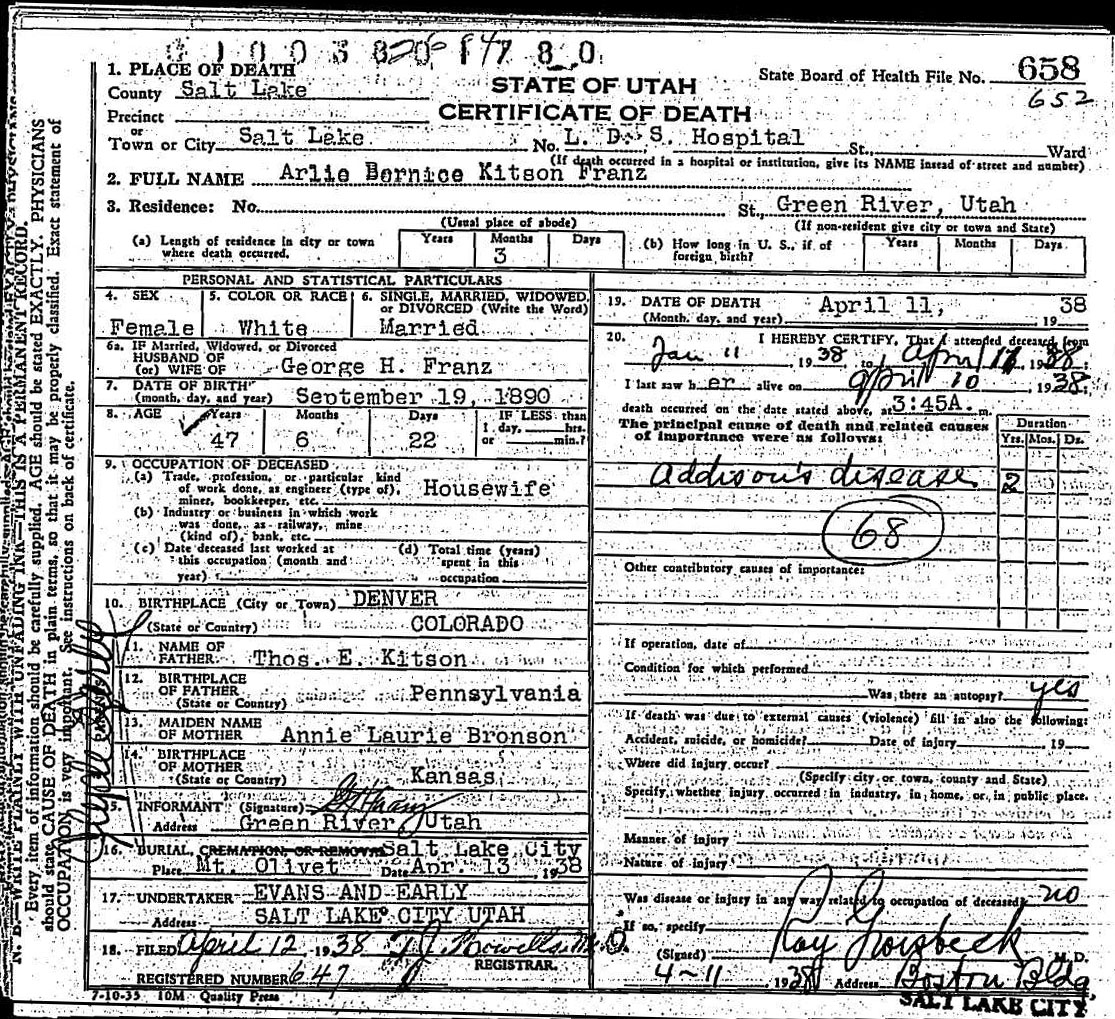 1. PLACE OF DEATH
County Salt Lake
Precinct
or
Town or City Salt Lake
STATE OF UTAH
CERTIFICATE OF DEATH
State Board of Health File No. 658
652
No. L. D. S. Hospital St., Ward
(If death occurred in a hospital or institution, give its NAME instead of street and number)
2. FULL NAME Arlie Bernice Kitson Franz
3. Residence: No. St., Green River, Utah
(Usual place of abode) (If non-resident give city or town and State)
(a) Length of residence in city or town
where death occurred.
Years Months Days
3
(b) How long in U. S., if of
foreign birth?
Years Months Days
PERSONAL AND STATISTICAL PARTICULARS
4. SEX
Female
5. COLOR OR RACE
White
6. SINGLE, MARRIED, WIDOWED,
or DIVORCED (Write the Word)
Married
6a. IF Married, Widowed, or Divorced
HUSBAND OF
(or) WIFE OF George H. Franz
7. DATE OF BIRTH
(month, day, and year) September 19, 1890
8. AGE Years Months Days IF LESS than
1 day, hrs.
or min.?
47 6 22
9. OCCUPATION OF DECEASED
(a) Trade, profession, or particular kind
of work done, as engineer (type of),
miner, bookkeeper, etc. Housewife
(b) Industry or business in which work
was done, as railway, mine
(kind of), bank, etc.
(c) Date deceased last worked at
this occupation (month and
year)
(d) Total time (years)
spent in this
occupation
10. BIRTHPLACE (City or Town) DENVER
(State or Country) COLORADO
11. NAME OF
FATHER Thos. E. Kitson
12. BIRTHPLACE
OF FATHER
(State or Country) Pennsylvania
13. MAIDEN NAME
OF MOTHER Annie Laurie Bronson
14. BIRTHPLACE
OF MOTHER
(State or Country) Kansas
15. INFORMANT (Signature)
Address Green River, Utah
16. BURIAL, CREMATION OR REMOVAL Salt Lake City
Place Mt. Olivet Date Apr. 13, 1938
17. UNDERTAKER EVANS AND EARLY
Address SALT LAKE CITY UTAH
18. FILED April 12, 1938
REGISTRAR.
REGISTERED NUMBER 647
7-10-35 10M Quality Press
19. DATE OF DEATH April 11, 38
(Month, day, and year) 19
20. I HEREBY CERTIFY, That I attended deceased from
Jan 11, 1938 to April 11, 1938
I last saw her alive on April 10, 1938
death occurred on the date stated above, at 3:45A. m.
The principal cause of death and related causes
of importance were as follows:
Duration
Yrs. Mos. Ds.
Addison's disease 2
68
Other contributory causes of importance:
If operation, date of
Condition for which performed
Was there an autopsy? yes
If death was due to external causes (violence) fill in also the following:
Accident, suicide, or homicide? Date of injury 19
Where did injury occur?
(Specify city or town, county and State)
Specify whether injury occurred in industry, in home, or in public place.
Manner of injury
Nature of injury
Was disease or injury in any way related to occupation of deceased? no
If so, specify
(Signed) Ray Groesbeck M. D.
4-11 1938 Address Boston Bldg.
SALT LAKE CITY
N. B.—WRITE PLAINLY WITH UNFADING INK—THIS IS A PERMANENT RECORD.
Every item of information should be carefully supplied. AGE should be stated EXACTLY. PHYSICIANS
should state CAUSE OF DEATH in plain terms, so that it may be properly classified. Exact statement of
OCCUPATION is very important. See instructions on back of certificate.